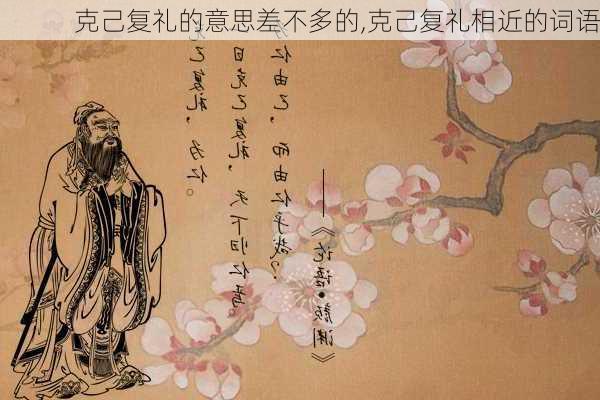 克己复礼的意思差不多的,克己复礼相近的词语
己复礼，为仁。
日克己复礼，天下归仁焉。
仁由己，而由仁乎哉？
——《论语•颜渊》